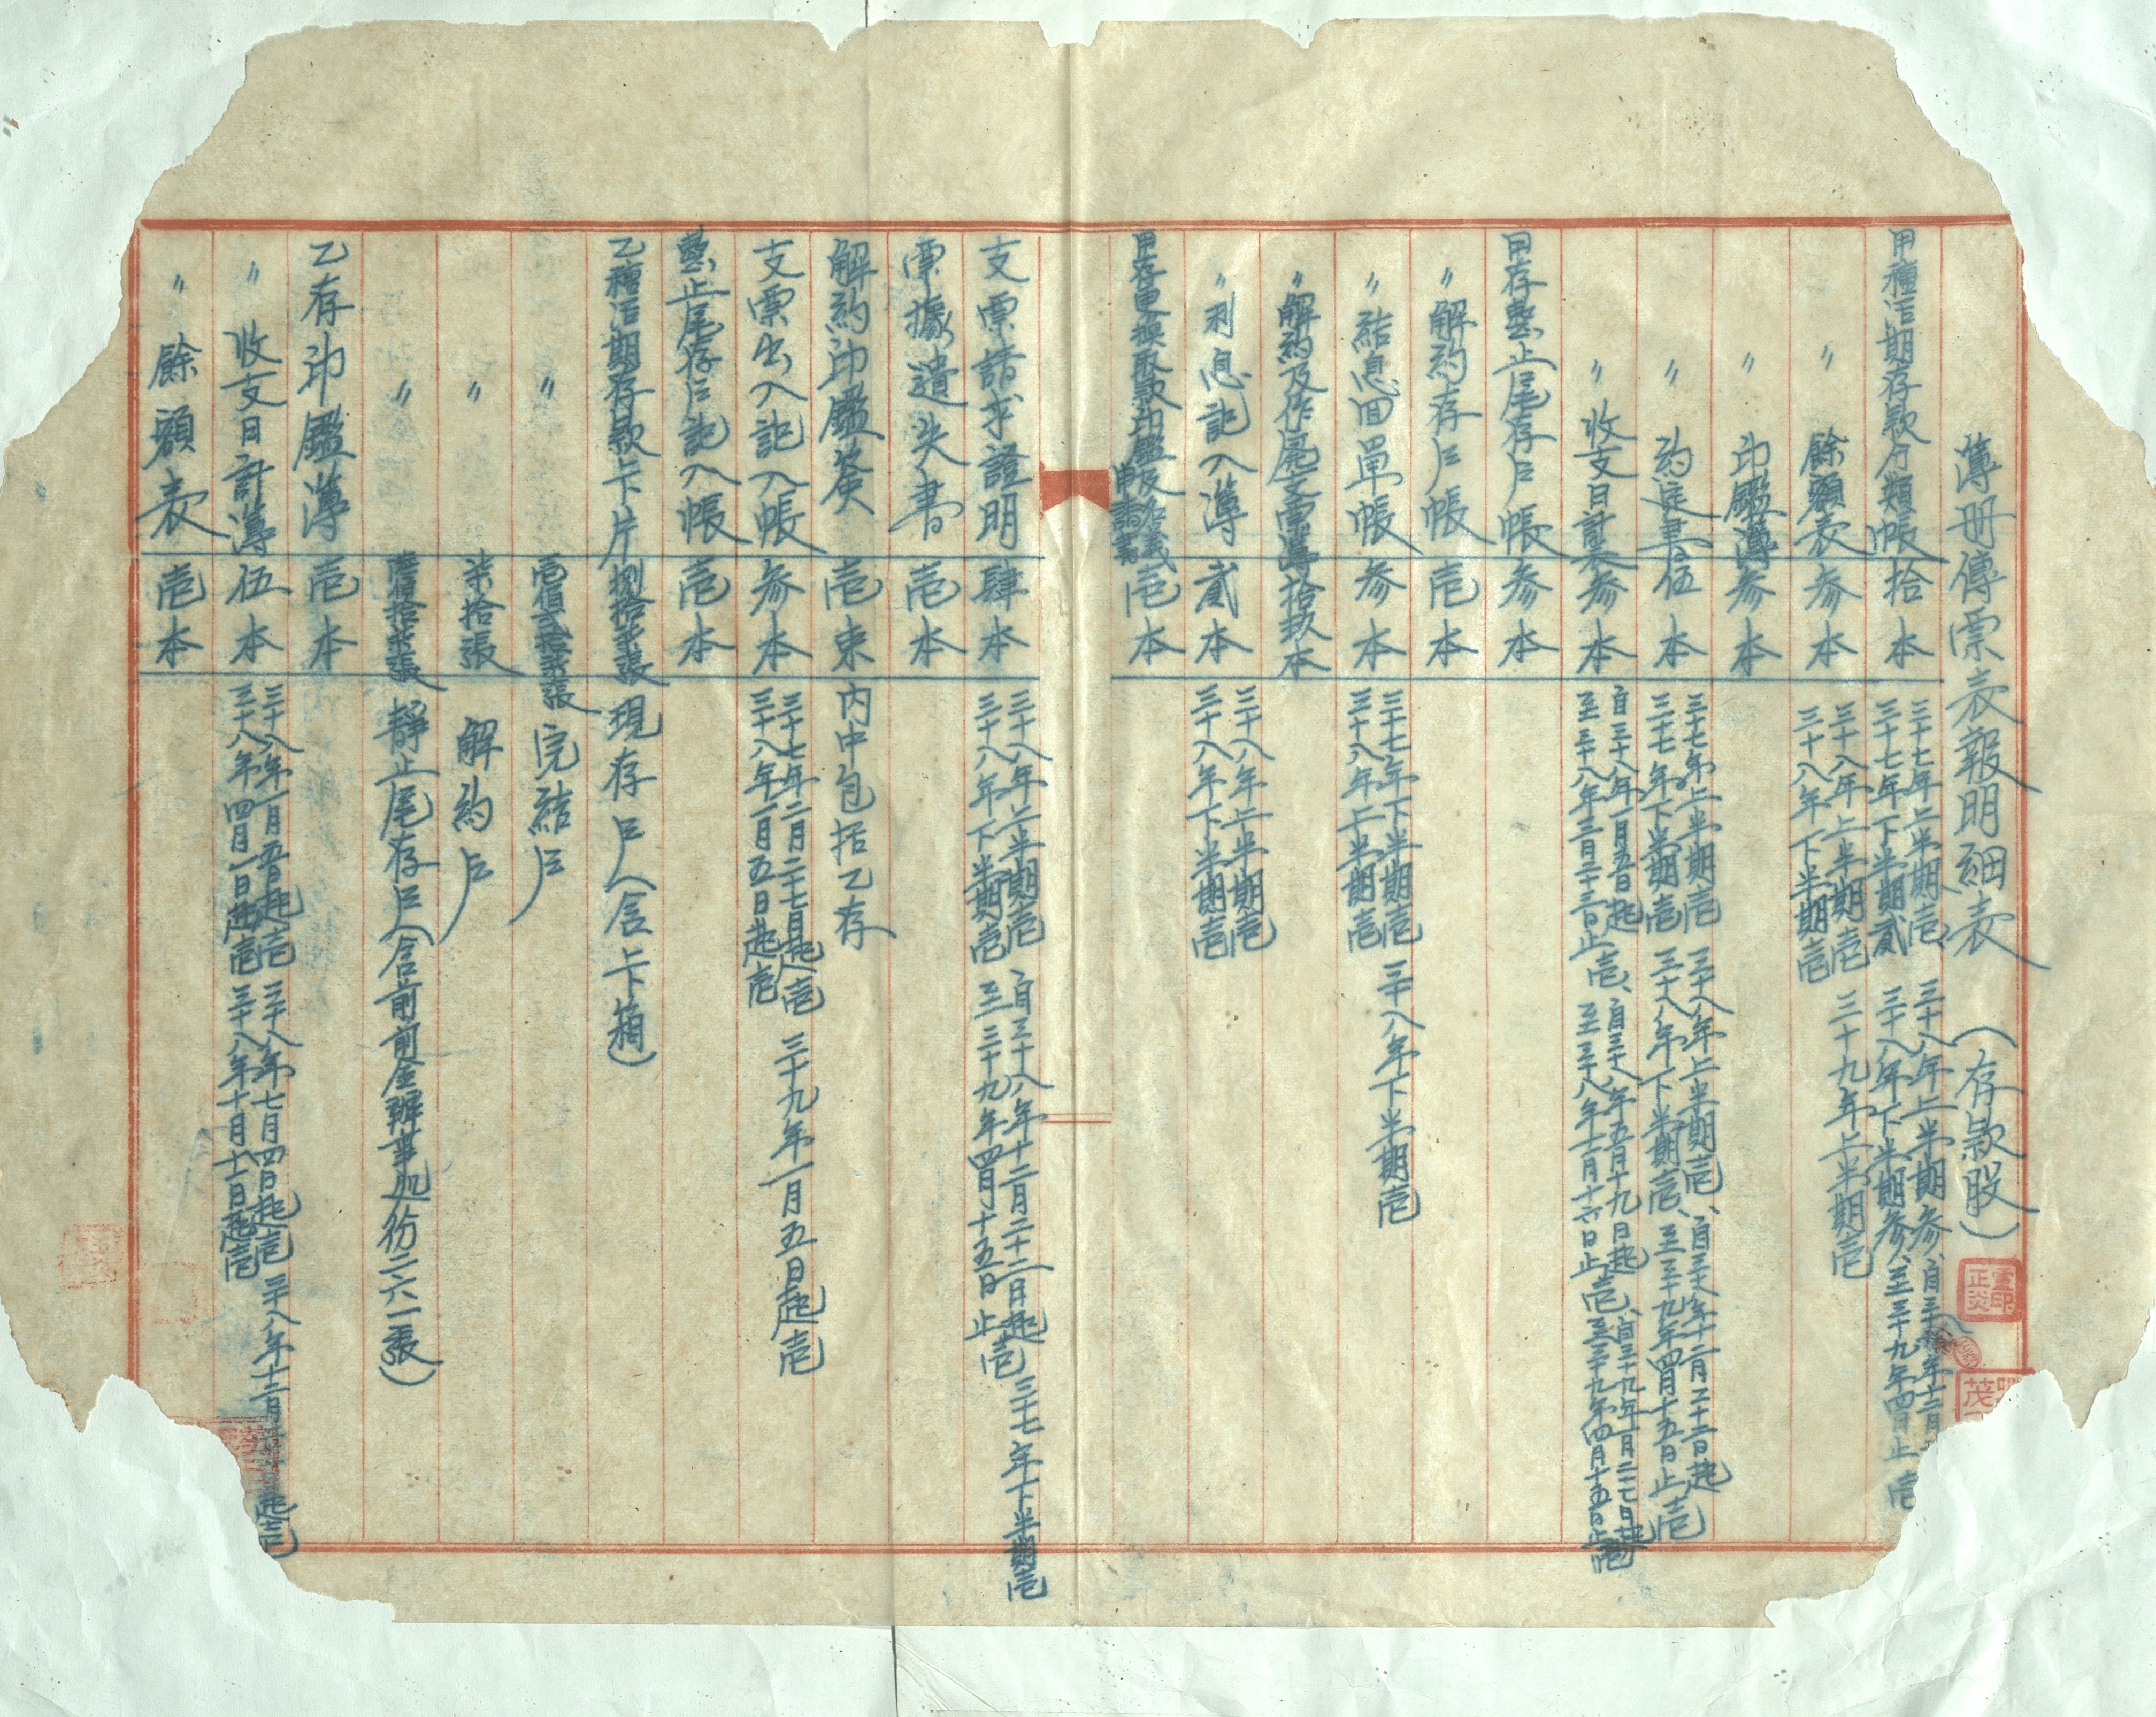 簿冊傳票表報明細表 (存款股)
甲種活期存款分類帳 拾本 三十七年上半期壹、三十七年下半期貳 三十八年上半期參、三十八年下半期參、至三十九年四月止壹
〃 餘額表 參本 三十八年上半期壹 三十八年下半期壹 三十九年上半期壹
〃 印鑑簿 參本
〃 約定書 伍本 三十七年上半期壹 三十七年下半期壹 三十八年上半期壹、三十八年下半期壹、自三十八年十二月二十二日起至三十九年四月十五日止壹
〃 收支日計表 參本 自三十八年一月五日起至三十八年三月二十三日止壹、自三十八年五月十九日起至三十八年十二月十六日止壹、自三十九年一月二十七日起至三十九年四月十五日止壹
甲存整止尾存戶帳 參本
〃 解約存戶帳 壹本
〃 結息回單帳 參本 三十七年下半期壹 三十八年上半期壹 三十八年下半期壹
〃 解約及作廢支票簿 拾玖本
〃 利息記入簿 貳本 三十八年上半期壹 三十八年下半期壹
甲存更換取款印鑑及 申請書 壹本
支票請求證明 肆本 三十八年上半期壹 三十八年下半期壹 自三十八年十二月二十二日起至三十九年四月十五日止壹 三十七年下半期壹
票據遺失書 壹本
解約印鑑簽 壹束 內中包括乙存
支票出入記入帳 參本 三十七年二月二十七日起壹 三十八年一月五日起壹 三十九年一月五日起壹
整止尾存戶記入帳 壹本
乙種活期存款卡片 捌拾柒張 現存戶(含卡箱)
〃 完結戶
〃 柒拾張 解約戶
〃 靜止尾存戶(含前前金辦事處份二六一張)
乙存印鑑簿 壹本
〃 收支日計簿 伍本 三十八年一月五日起壹 三十八年四月一日起壹 三十八年七月四日起壹 三十八年十月十一日起壹 三十八年十二月 起壹
〃 餘額表 壹本